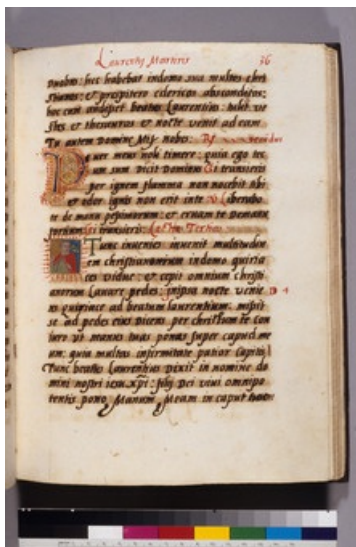 Laurentij Martiris 36
duobus: hec habebat in domo sua multos chri
stianos: et presbitero clericos absconditos:
hoc cum audisset beatus Laurentius: tulit ve
stes et thesauros et nocte venit ad eam
Tu autem Domine Mis nobis:
Puer meus noli timere: quia ego tec
um sum dicit Dominus Si transieris
per ignem flamma non nocebit tibi
et odor ignis non erit in te Liberabo
te de manu pessimorum: et eruam te de manu
fortium Si transieris: Lectio Tertia
Tunc inveniens invenit multitudin
em christianorum in domo quiria
ces vidue: et cepit omnium christi
anorum Lavare pedes: in ipsa nocte venie
s quiriace ad beatum laurentium: misit
se ad pedes eius dicens per christum te con
iuro ut manus tuas ponas super caput me
um: quia multas infirmitate patior capitis
Tunc beatus Laurentius dixit in nomine do
mini nostri iesu xpi: filij Dei vivi omnipo
tentis pono Manum Meam in caput tuum